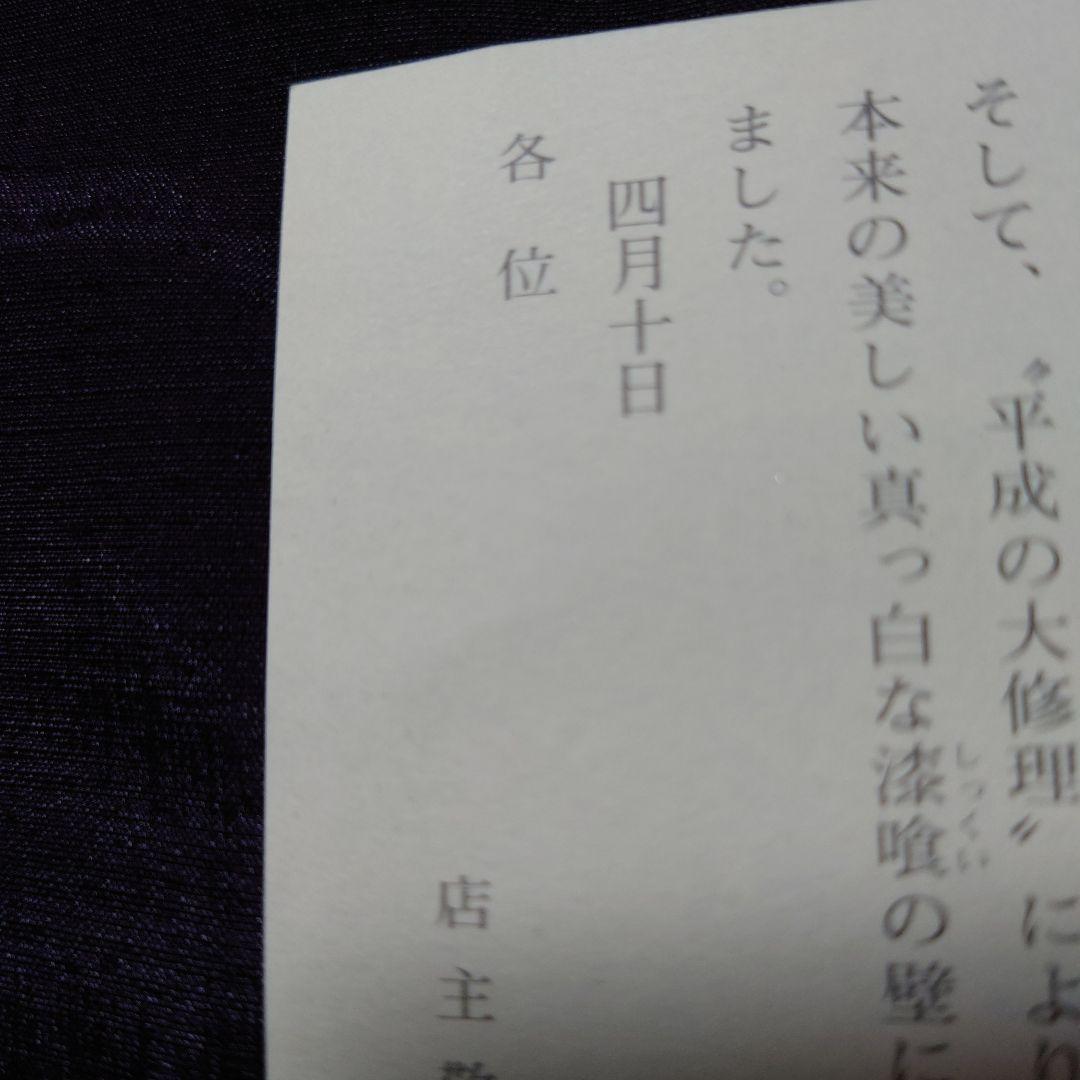 そして、〝平成の大修理〟により
本来の美しい真っ白な漆喰の壁に
しっくい
ました。
四月十日
各位
店主敬